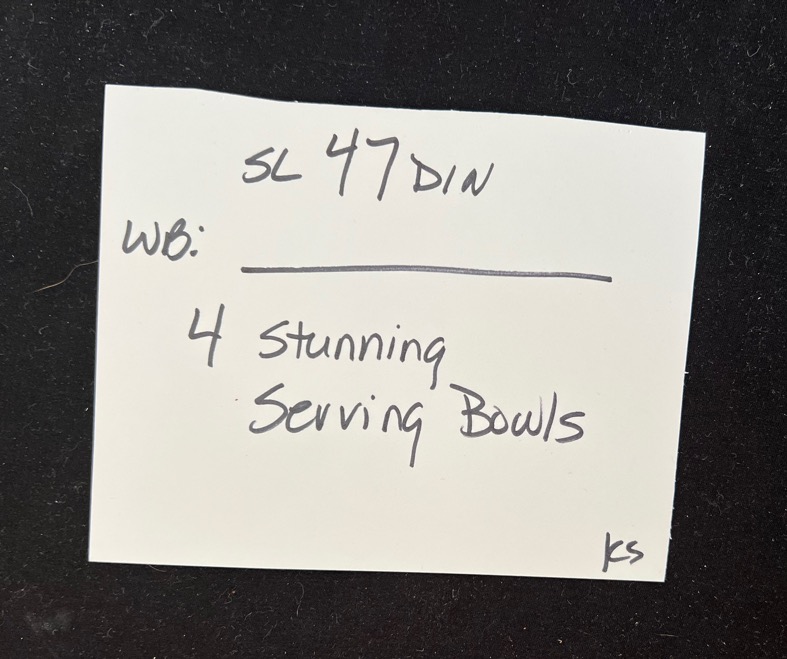 SL 47 DIN
WB:
4 Stunning
Serving Bowls
KS